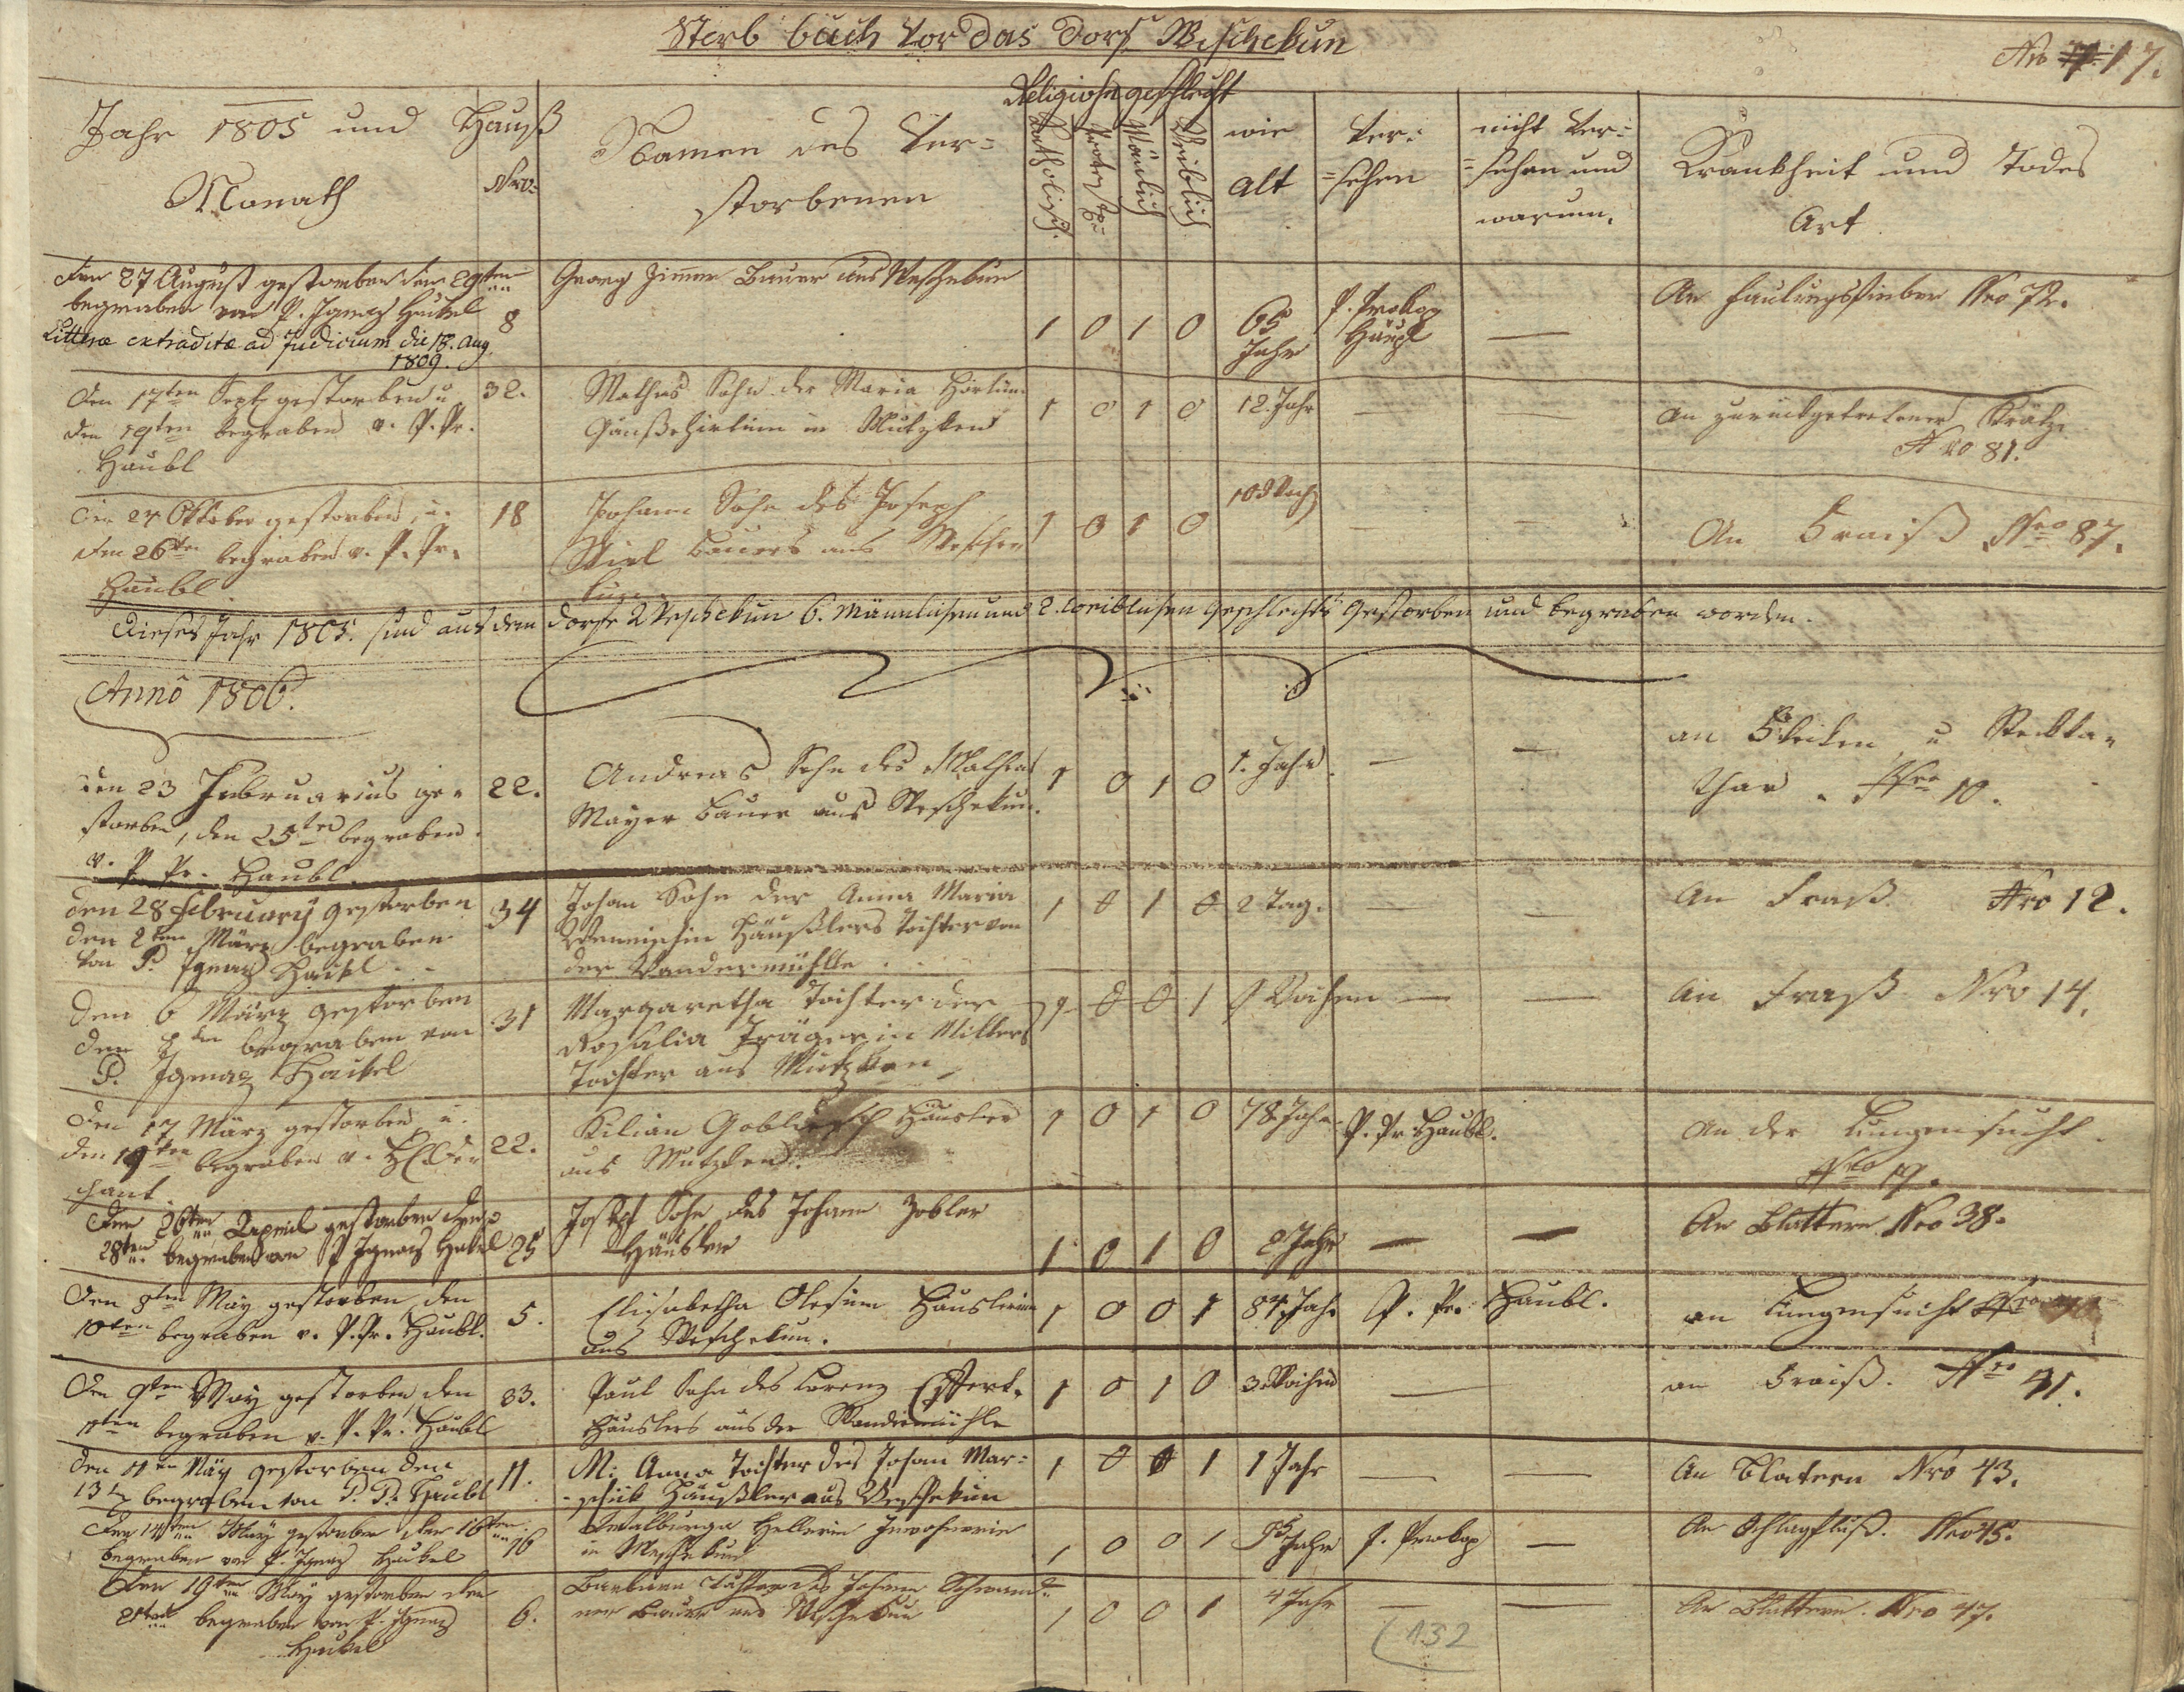 Sterb buch vor das Dorf Weschekun
Nro 17.
Jahr 1805 und
Monath
Hauß
Nro
Namen des Ver=
storbenen
Religion geschlecht
Katholisch.
Protest.
Mänlich
Weiblich
wie
alt
Ver=
=sehen
nicht Ver=
=sehen und
warum.
Krankheit und Todes
Art
Den 27 August gestorben den 29ten
begraben von P. Ignaz Haikel
Litterae extraditae ad Judicium die 18. Aug
1809.
8
Georg Zimmer Bauer aus Weschekun
1 0 1 0
65
Jahr
P. Prokop
Haupl
—
An Faulungsfieber Nro 72.
Den 17ten Sept gestorben u
den 19ten begraben v. P. Pr.
Haubl
32.
Mathes Sohn der Maria
Gänßehirtin in Mutzken
1 0 1 0
12. Jahr
—
—
An zurückgetretener Krätze
Nro 81.
Den 24 Oktober gestorben, u.
den 26ten begraben v. P. Pr.
Haubl
18
Johann Sohn des Joseph
Bauers aus Wesche
kun
1 0 1 0
—
—
An Fraiß Nro 87.
Dieses Jahr 1805. sind aus dem Dorfe Weschekun 6. Männlichen und 2. weiblichen Geschlechts gestorben und begraben worden.
Anno 1806.
den 23 Februarius ge=
storben, den 25ten begraben.
v. P. Pr. Haubl.
22.
Andreas Sohn des Mathias
Mayer Bauer aus Weschekun.
1 0 1 0
1. Jahr.
—
—
an u Steckka=
thar. Nro 10.
den 28 February gestorben
den 2ten März begraben
von P. Ignaz Haikl
34
Johan Sohn der Anna Maria
Häußlers Tochter von
der Wandermühlle
1 0 1 0
2 Tag.
—
—
An Fraß Nro 12.
Den 6 März gestorben
den 8ten begraben von
P. Ignaz Haikel
31
Margaretha Tochter der
Rosalia Trägerin Millers
Tochter aus Mutzken
1 0 0 1
9 Wochen
—
—
An Fraß Nro 14.
Den 17 März gestorben u.
den 19ten begraben v. H. De
chant.
22.
Kilian Häusler
aus Mutzken.
1 0 1 0
78. Jahr
P. Pr Haubl.
An der Lungensucht.
Nro 19.
Den 26ten April gestorben den
28ten begraben von P Ignaz Haikel
25
Joseph Sohn des Johann Zobler
Häusler
1 0 1 0
2 Jahr
—
—
An Blattern Nro 38.
Den 8ten May gestorben den
10ten begraben v. P. Pr. Haubl.
5.
Elisabetha Häuslerin
aus Weschekun.
1 0 0 1
84. Jahr
P. Pr. Haubl.
an Lungensucht Nro
Den 9ten May gestorben, den
11ten begraben v. P. Pr. Haubl
33.
Paul Sohn des Lorenz
Häuslers aus der Wandermühle
1 0 1 0
3. Wochen
—
an Fraiß. Nro 41.
den 11ten May gestorben den
13 begraben von P. P. Haubl
11.
M: Anna Tochter des Johan Mar=
=schik Häußler aus Weschekun
1 0 0 1
1 Jahr
—
—
An Blatern Nro 43.
Den 14ten May gestorben den 16ten
begraben von P. Ignaz Haikel
16
Walburga Hellerin Inwohnerin
in Weschekun
1 0 0 1
Jahr
P. Prokop
—
An Schlagfluß. Nro 45.
Den 19ten May gestorben den
21ten begraben von P. Ignaz
Haikel
6.
Barbara Tochter des Johann Schwand=
ner Bauer aus Weschekun
1 0 0 1
4 Jahr
—
—
An Blattern. Nro 47.
132